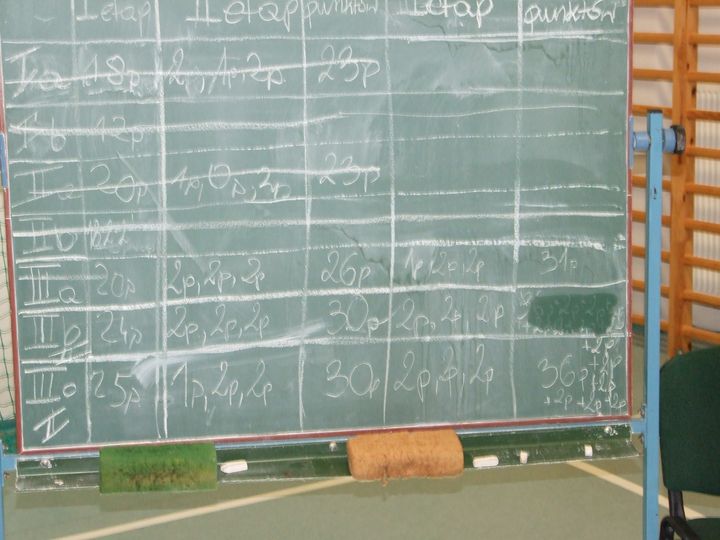 I etap II etap punktów etap punktów
I a 18p 2p, 1p, 2p 23p
I b 12p
II a 20p 1p, 0p, 3p 23p
II b
III a 20p 2p, 2p, 2p 26p 1p, 2p, 2p 31p
III b 24p 2p, 2p, 2p 30p 2p, 2p, 2p
+2p
III c 25p 1p, 2p, 2p 30p 2p, 2p, 2p 36p +2p
+2p +2p +2p